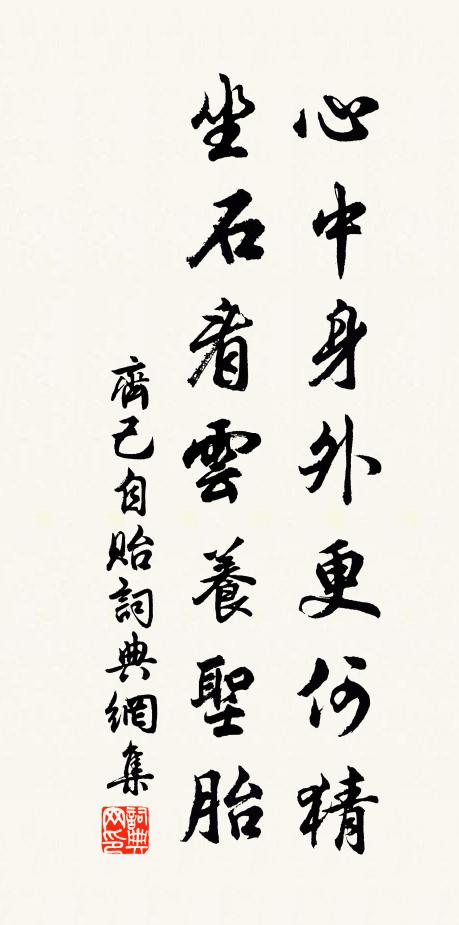 心中身外更何猜
坐石看雲養聖胎
齊己自貽詞典網集
詞典
网印